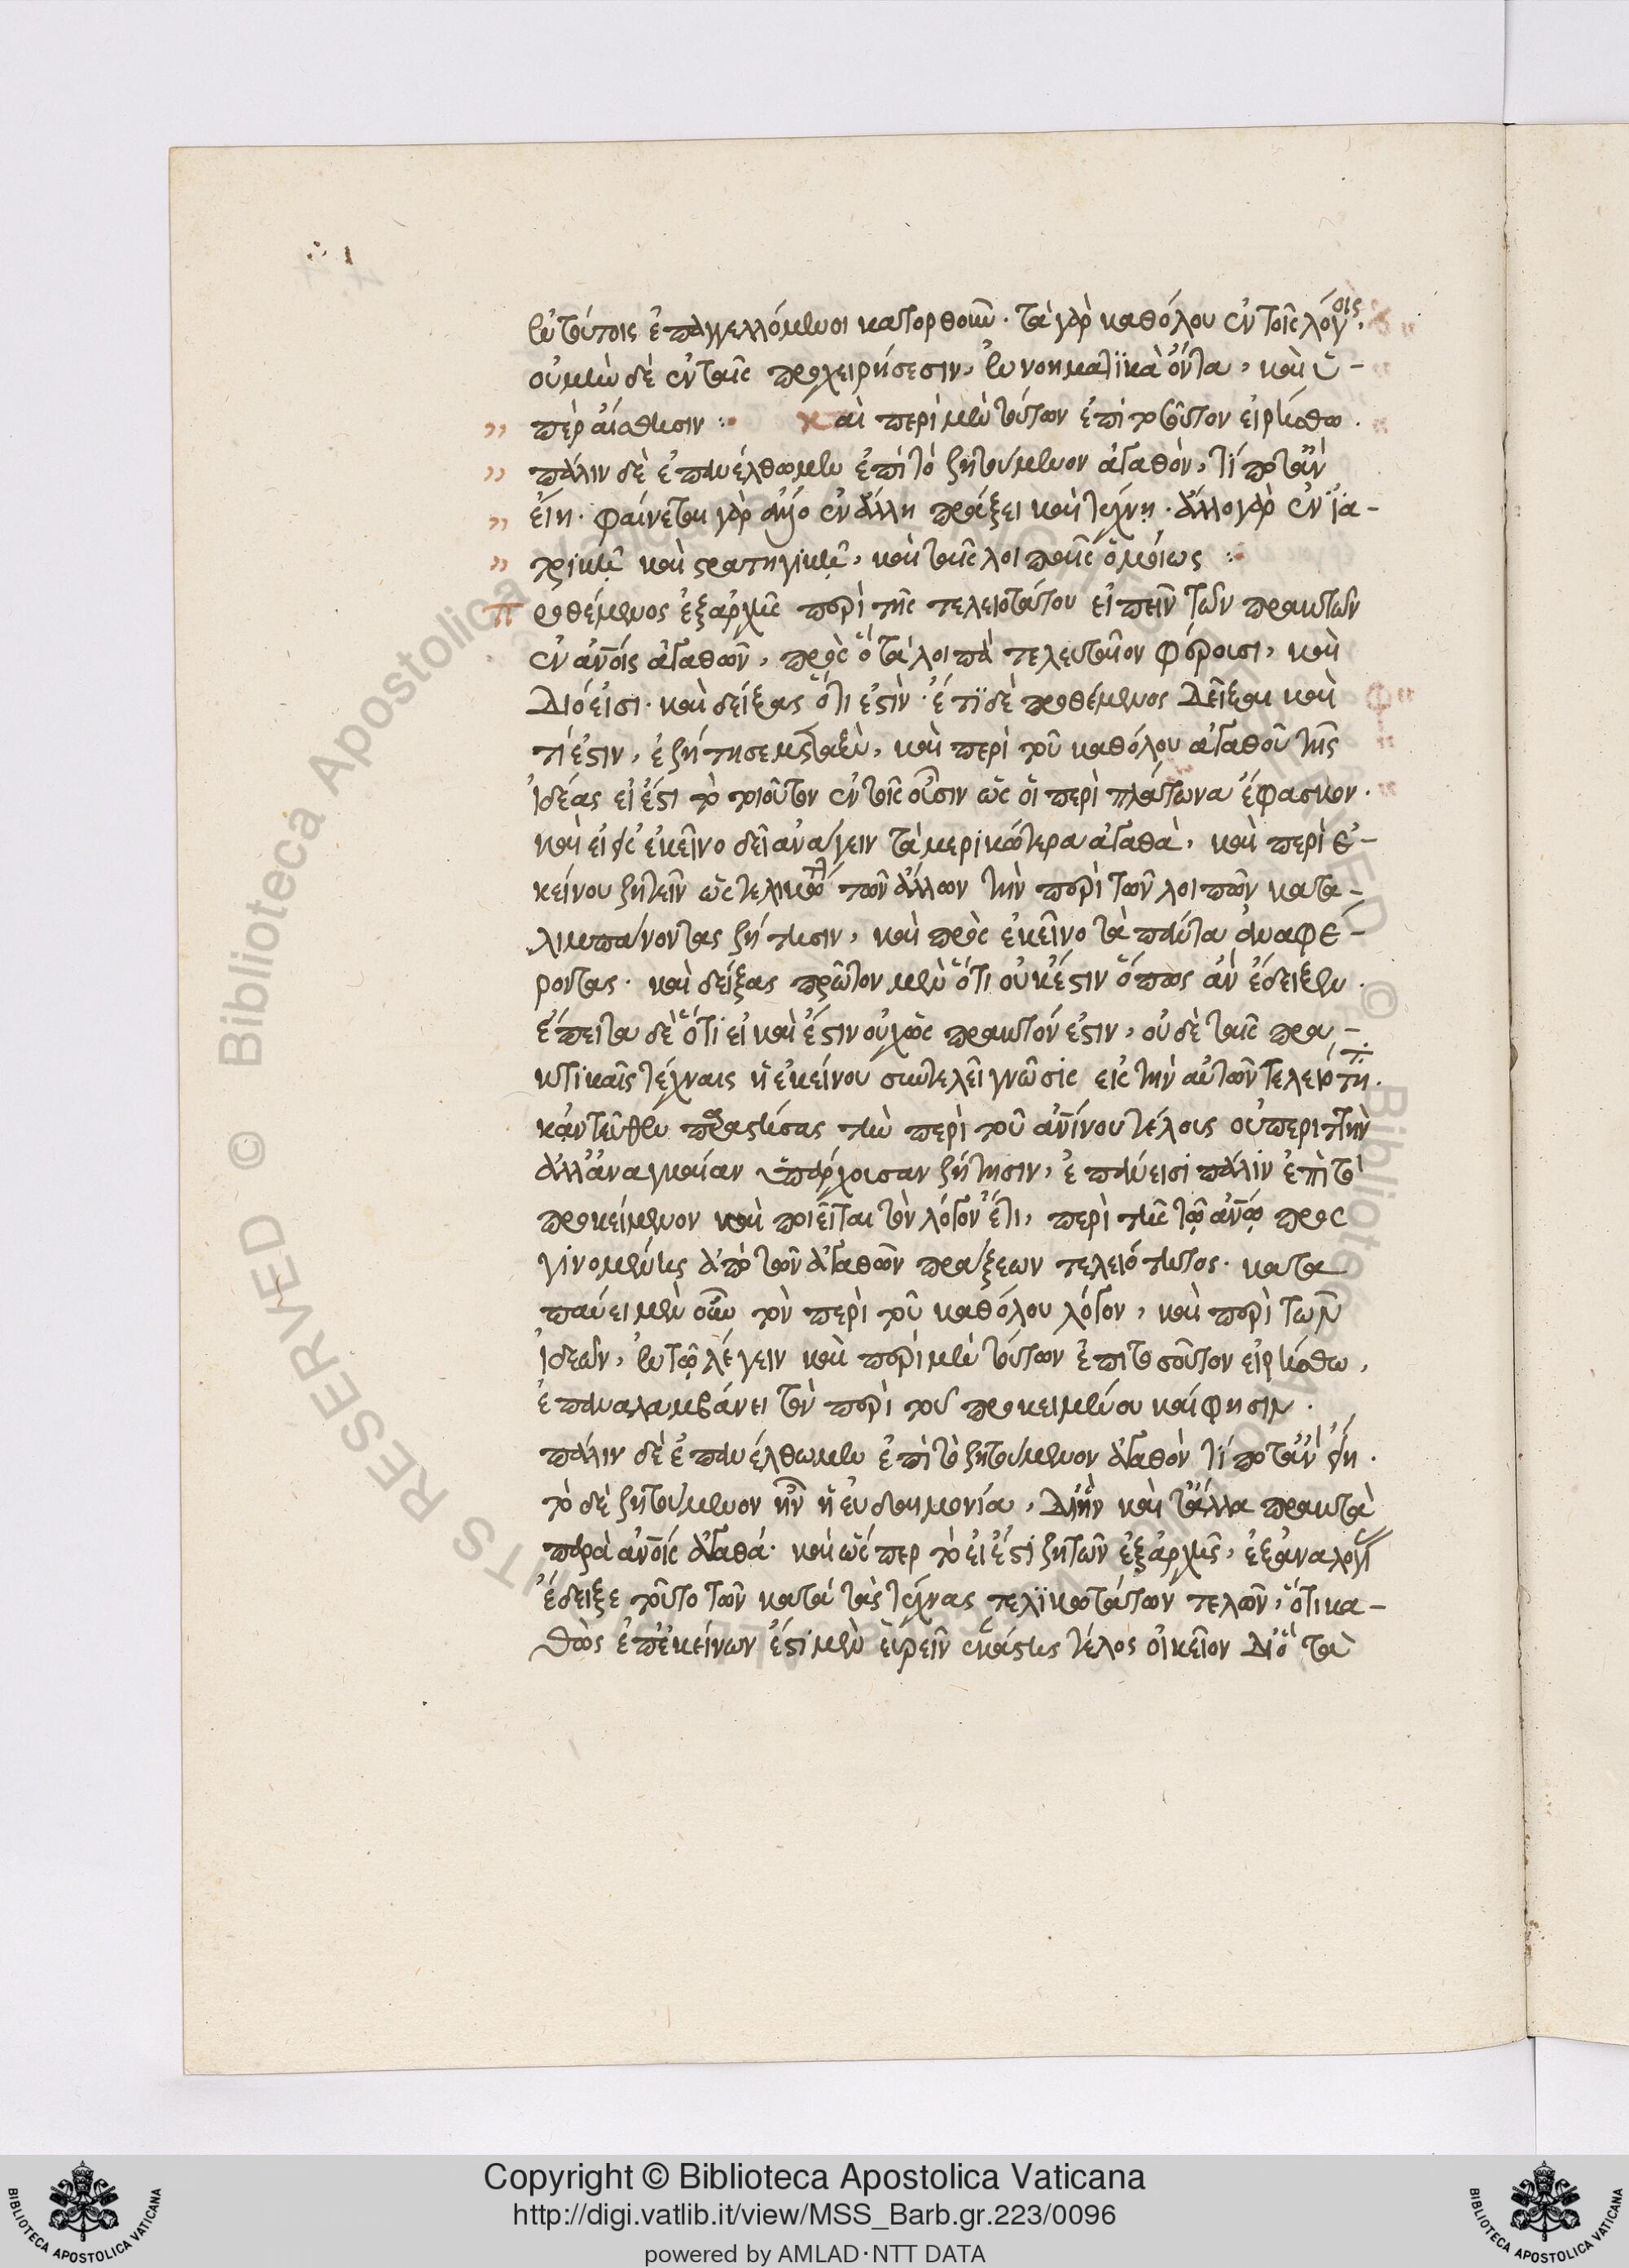 ἐν τούτοις ἐπαγγελλόμενοι κατορθοῦν. τὰ γὰρ καθόλου ἐν τοῖς λόγοις,
οὐ μὴν δὲ ἐν ταῖς προχειρήσεσιν, ἐννοηματϊκὰ ὄντα, καὶ ὑ-
πὲρ αἴσθησιν : καὶ περὶ μὲν τούτων ἐπὶ τοσοῦτον εἰρήσθω.
πάλιν δὲ ἐπανέλθωμεν ἐπὶ τὸ ζητούμενον ἀγαθὸν, τί ποτ' ἂν
εἴη. φαίνεται γὰρ ἄλλο ἐν ἄλλη πράξει καὶ τέχνη. ἄλλο γὰρ ἐν ἰα-
τρικῇ καὶ στρατηγικῇ, καὶ ταῖς λοιπαῖς ὁμοίως :
προθέμενος ἐξαρχῆς περὶ τῆς τελειοτάτου εἰπεῖν τῶν πρακτῶν
ἐν ἀνοις ἀγαθῶν, πρὸς ὃ τὰ λοιπὰ τελευταῖον φέρουσι, καὶ
διό εἰσι. καὶ δείξας ὅτι ἐστὶν. ἔτϊ δὲ προθέμενος δεῖξαι καὶ
τί ἐστιν, ἐζήτησε μεταξὺ, καὶ περὶ τοῦ καθόλου ἀγαθοῦ τῆς
ἰδέας εἰ ἔστι τὸ τοιοῦτον ἐν τοῖς οὖσιν ὡς οἱ περὶ πλάτωνα ἔφασκον.
καὶ εἰς ἐκεῖνο δεῖ ἀνάγειν τὰ μερικώτερα ἀγαθὰ, καὶ περὶ ἐ-
κείνου ζητεῖν ὡς τελικωτ τῶν ἄλλων τὴν περὶ τῶν λοιπῶν κατα-
λιμπάνοντας ζήτησιν, καὶ πρὸς ἐκεῖνο τὰ πάντα ἀναφέ-
ροντας. καὶ δείξας πρῶτον μὲν ὅτι οὐκ ἔστιν ὅπως ἂν ἔδειξεν.
ἔπειτα δὲ ὅτι εἰ καὶ ἔστιν οὐχ ὡς πρακτόν ἐστιν, οὐδὲ ταῖς πρα-
κτικαῖς τέχναις ἡ ἐκείνου συντελεῖ γνῶσις εἰς τὴν αὐτῶν τελειότητ.
κἀντεῦθεν παραστήσας τὴν περὶ τοῦ ἀνίνου τέλους οὐ περιττὴν
ἀλλ' ἀναγκαίαν ὑπάρχουσαν ζήτησιν, ἐπάνεισι πάλιν ἐπὶ τὸ
προκείμενον καὶ ποιεῖται τὸν λόγον ἔτι, περὶ τῆς τῷ ἀνῳ προς
γινομένης ἀπὸ τῶν ἀγαθῶν πράξεων τελειότητος. κατα
παύει μὲν οὖν τὸν περὶ τοῦ καθόλου λόγον, καὶ περὶ τῶν
ἰδεῶν, ἐν τῷ λέγειν καὶ περὶ μὲν τούτων ἐπιτοσοῦτον εἰρήσθω,
ἐπαναλαμβάνει τὸν περὶ τοῦ προκειμένου καί φησιν.
πάλιν δὲ ἐπανέλθωμεν ἐπὶ τὸ ζητούμενον ἀγαθὸν τί ποτ' ἂν εἴη.
τὸ δὲ ζητούμενον ἦν ἡ εὐδαιμονία, δι' ἣν καὶ τἄλλα πρακτὰ
παρὰ ἀνοις ἀγαθά. καὶ ὥσπερ τὸ εἰ ἔστι ζητῶν ἐξ ἀρχῆς, ἐξ ἀναλογί
ἔδειξε τοῦτο τῶν κατὰ τὰς τέχνας τελϊκωτάτων τελῶν, ὅτι κα-
θὼς ἐπ' ἐκείνων ἔστι μὲν εὑρεῖν ἑκάστης τέλος οἰκεῖον δι' ὃ τὰ
Copyright © Biblioteca Apostolica Vaticana
http://digi.vatlib.it/view/MSS_Barb.gr.223/0096
powered by AMLAD·NTT DATA